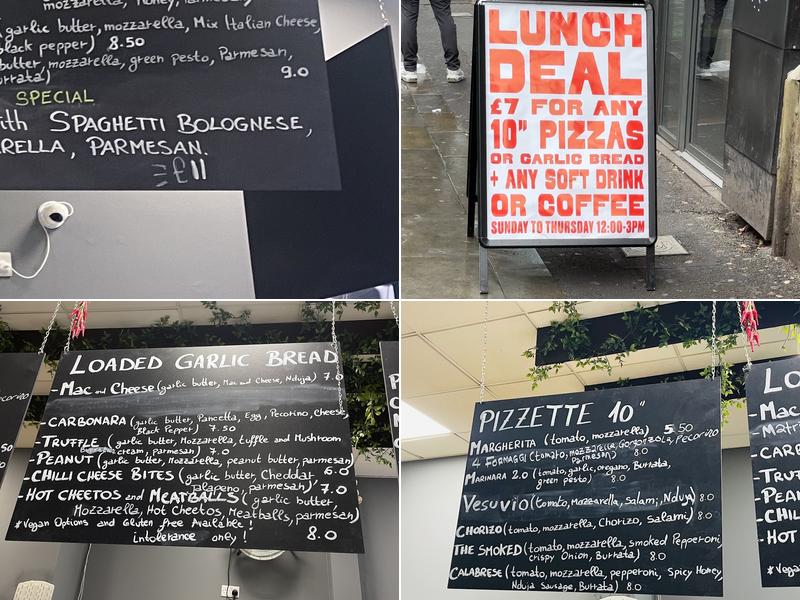 mozzarella, Honey, Parmesan,
garlic butter, mozzarella, Mix Italian Cheese,
black pepper) 8.50
butter, mozzarella, green pesto, Parmesan,
urrata) 9.0
SPECIAL
ith SPAGHETTI BOLOGNESE,
RELLA, PARMESAN.
£11
LUNCH
DEAL
£7 FOR ANY
10" PIZZAS
OR GARLIC BREAD
+ ANY SOFT DRINK
OR COFFEE
SUNDAY TO THURSDAY 12:00-3PM
LOADED GARLIC BREAD
- Mac and Cheese (garlic butter, Mac and Cheese, Nduja) 7.0
- CARBONARA (garlic butter, Pancetta, Egg, Pecorino, cheese,
Black Pepper) 7.50
- TRUFFLE (garlic butter, Mozzarella, tuffle and Mushroom
cream, parmesan) 7.0
- PEANUT (garlic butter, Mozzarella, peanut butter, parmesan)
6.0
- CHILLI CHEESE BITES (garlic butter, Cheddar
Jalapeno, parmesan) 7.0
- HOT CHEETOS and MEATBALLS (garlic butter,
Mozzarella, Hot Cheetos, Meatballs, parmesan)
8.0
* Vegan Options and Gluten free Available!
intolerance only!
PIZZETTE 10"
MARGHERITA (tomato, mozzarella) 5.50
4 FORMAGGI (tomato, mozzarella, Gorgonzola, Pecorino
Parmesan) 8.0
MARINARA 2.0 (tomato, garlic, oregano, Burrata,
green pesto) 8.0
Vesuvio (tomato, Mozzarella, Salami, Nduja) 8.0
CHORIZO (tomato, mozzarella, Chorizo, salami) 8.0
THE SMOKED (tomato, mozzarella, smoked Pepperoni,
crispy Onion, Burrata) 8.0
CALABRESE (tomato, mozzarella, pepperoni, Spicy Honey,
Nduja Sausage, Burrata) 8.0
LO
- Mac
Matri
- CARB
- TRUF
- PEAN
- CHIL
- HOT
* Vega